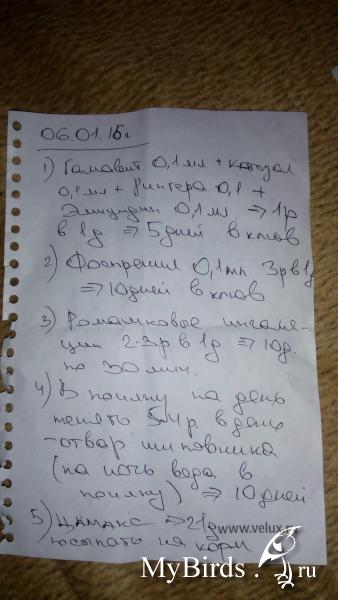 06.01.15г.
1) Гамавит 0,1мл + катозал
0,1мл + Рингера 0,1 +
0,1мл. ⇒ 1р
в 1д ⇒ 5дней в клюв
2) Фоспренил 0,1мл 3р в 1д
⇒ 10дней в клюв
3) Ромашковые ингаля-
ции 2-3р в 1д ⇒ 10д.
по 30 мин.
4) В поилку на день
менять 3-4р. в день
- отвар шиповника
(на ночь вода в
поилку) ⇒ 10 дней
5) Цамакс ⇒ 21д
посыпать на корм
www.velux.
MyBirds.ru